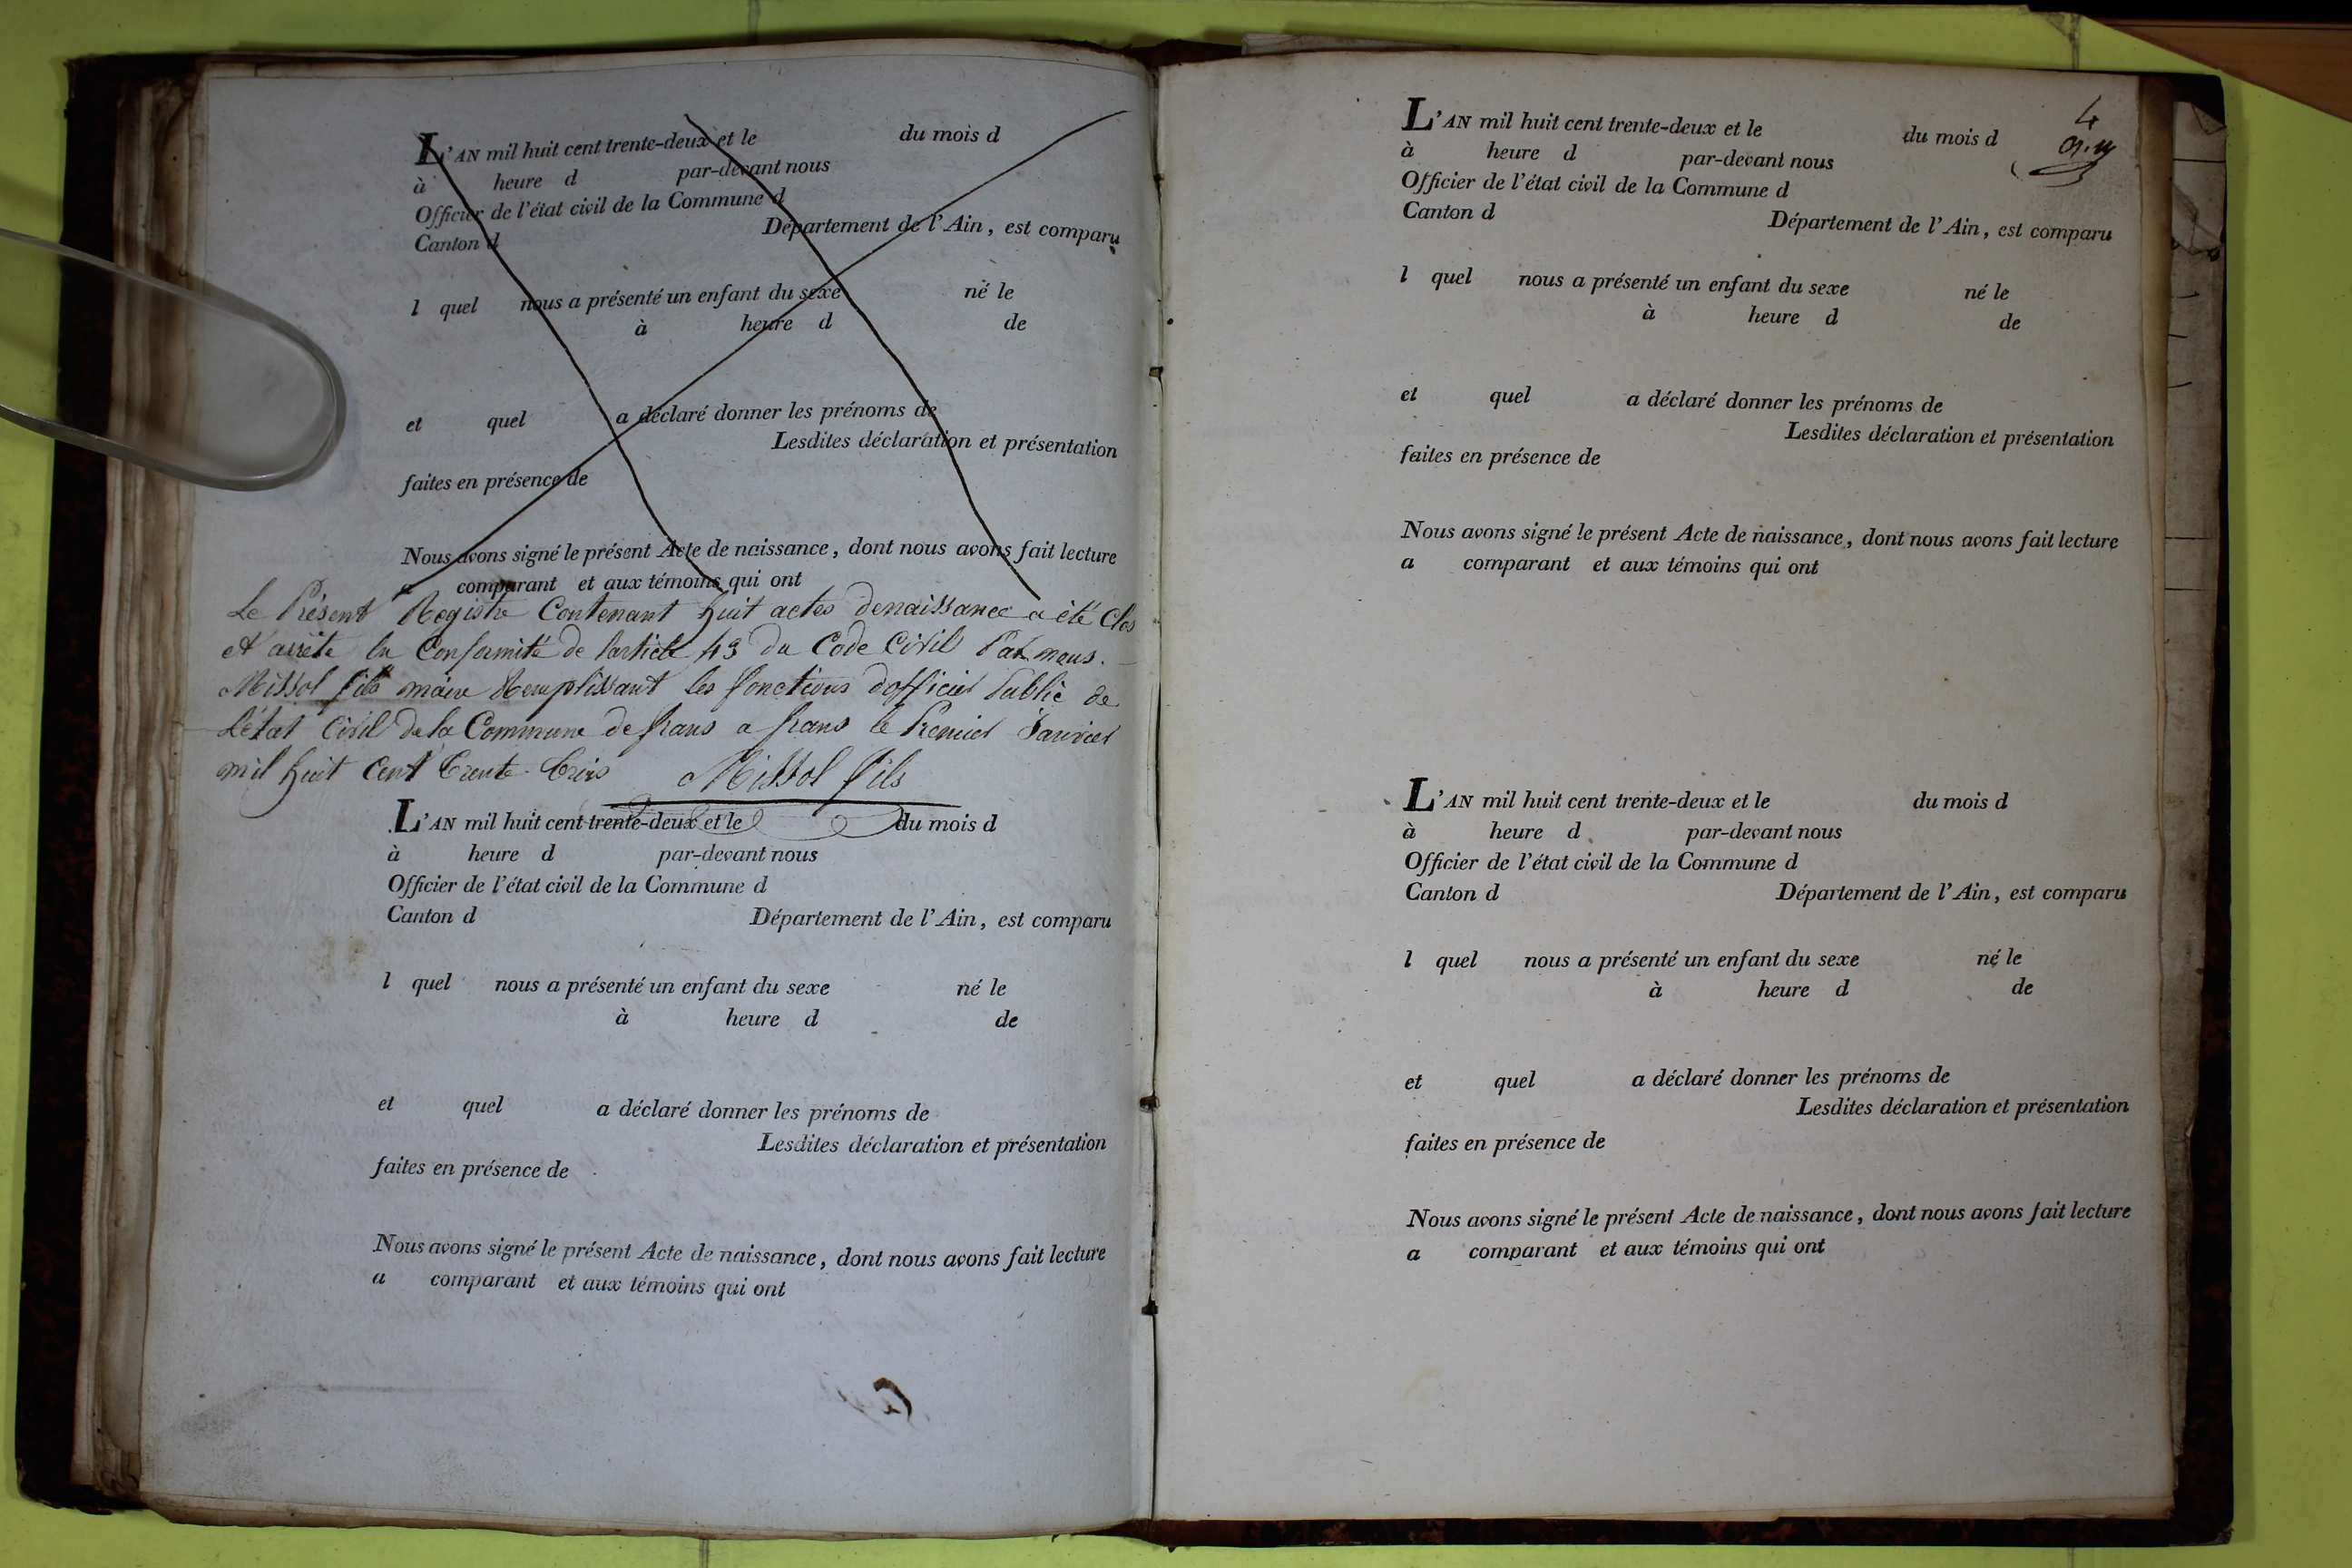 L'AN mil huit cent trente-deux et le du mois d
à heure d par-devant nous
Officier de l'état civil de la Commune d
Canton d Département de l'Ain, est comparu
l quel nous a présenté un enfant du sexe né le
à heure d de
et quel a déclaré donner les prénoms de
Lesdites déclaration et présentation
faites en présence de
Nous avons signé le présent Acte de naissance, dont nous avons fait lecture
a comparant et aux témoins qui ont
Le Présent Registre Contenant huit actes denaissance a été Clos
et arrêté en Conformité de larticle 43 du Code Civil Par nous.
Missol fils maire Remplissant les fonctions dofficier Public de
Létat Civil de la Commune de frans a frans le Premier Janvier
mil huit Cent Trente Trois Missol fils
L'AN mil huit cent trente-deux et le du mois d
à heure d par-devant nous
Officier de l'état civil de la Commune d
Canton d Département de l'Ain, est comparu
l quel nous a présenté un enfant du sexe né le
à heure d de
et quel a déclaré donner les prénoms de
Lesdites déclaration et présentation
faites en présence de
Nous avons signé le présent Acte de naissance, dont nous avons fait lecture
a comparant et aux témoins qui ont
4
L'AN mil huit cent trente-deux et le du mois d
à heure d par-devant nous
Officier de l'état civil de la Commune d
Canton d Département de l'Ain, est comparu
l quel nous a présenté un enfant du sexe né le
à heure d de
et quel a déclaré donner les prénoms de
Lesdites déclaration et présentation
faites en présence de
Nous avons signé le présent Acte de naissance, dont nous avons fait lecture
a comparant et aux témoins qui ont
L'AN mil huit cent trente-deux et le du mois d
à heure d par-devant nous
Officier de l'état civil de la Commune d
Canton d Département de l'Ain, est comparu
l quel nous a présenté un enfant du sexe né le
à heure d de
et quel a déclaré donner les prénoms de
Lesdites déclaration et présentation
faites en présence de
Nous avons signé le présent Acte de naissance, dont nous avons fait lecture
a comparant et aux témoins qui ont